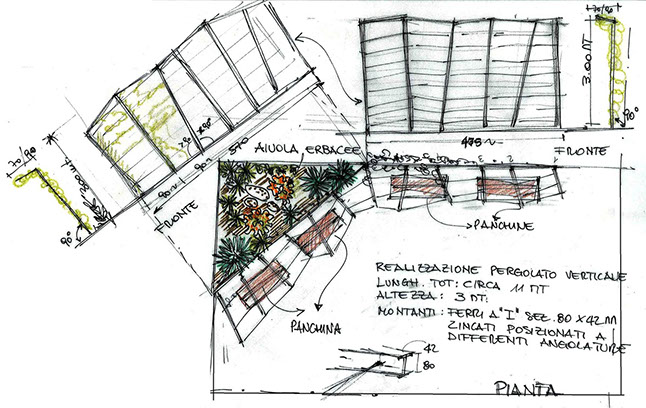 70/80
3.00 MT
90°
475 ~
FRONTE
570
80~
90~
FRONTE
70/80
90°
AIUOLA ERBACEE
PANCHINE
PANCHINA
REALIZZAZIONE PERGOLATO VERTICALE
LUNGH. TOT: CIRCA 11 MT
ALTEZZA: 3 MT.
MONTANTI: FERRI A "I" SEZ. 80 X 42 M
ZINCATI POSIZIONATI A
DIFFERENTI ANGOLATURE
42
80
PIANTA